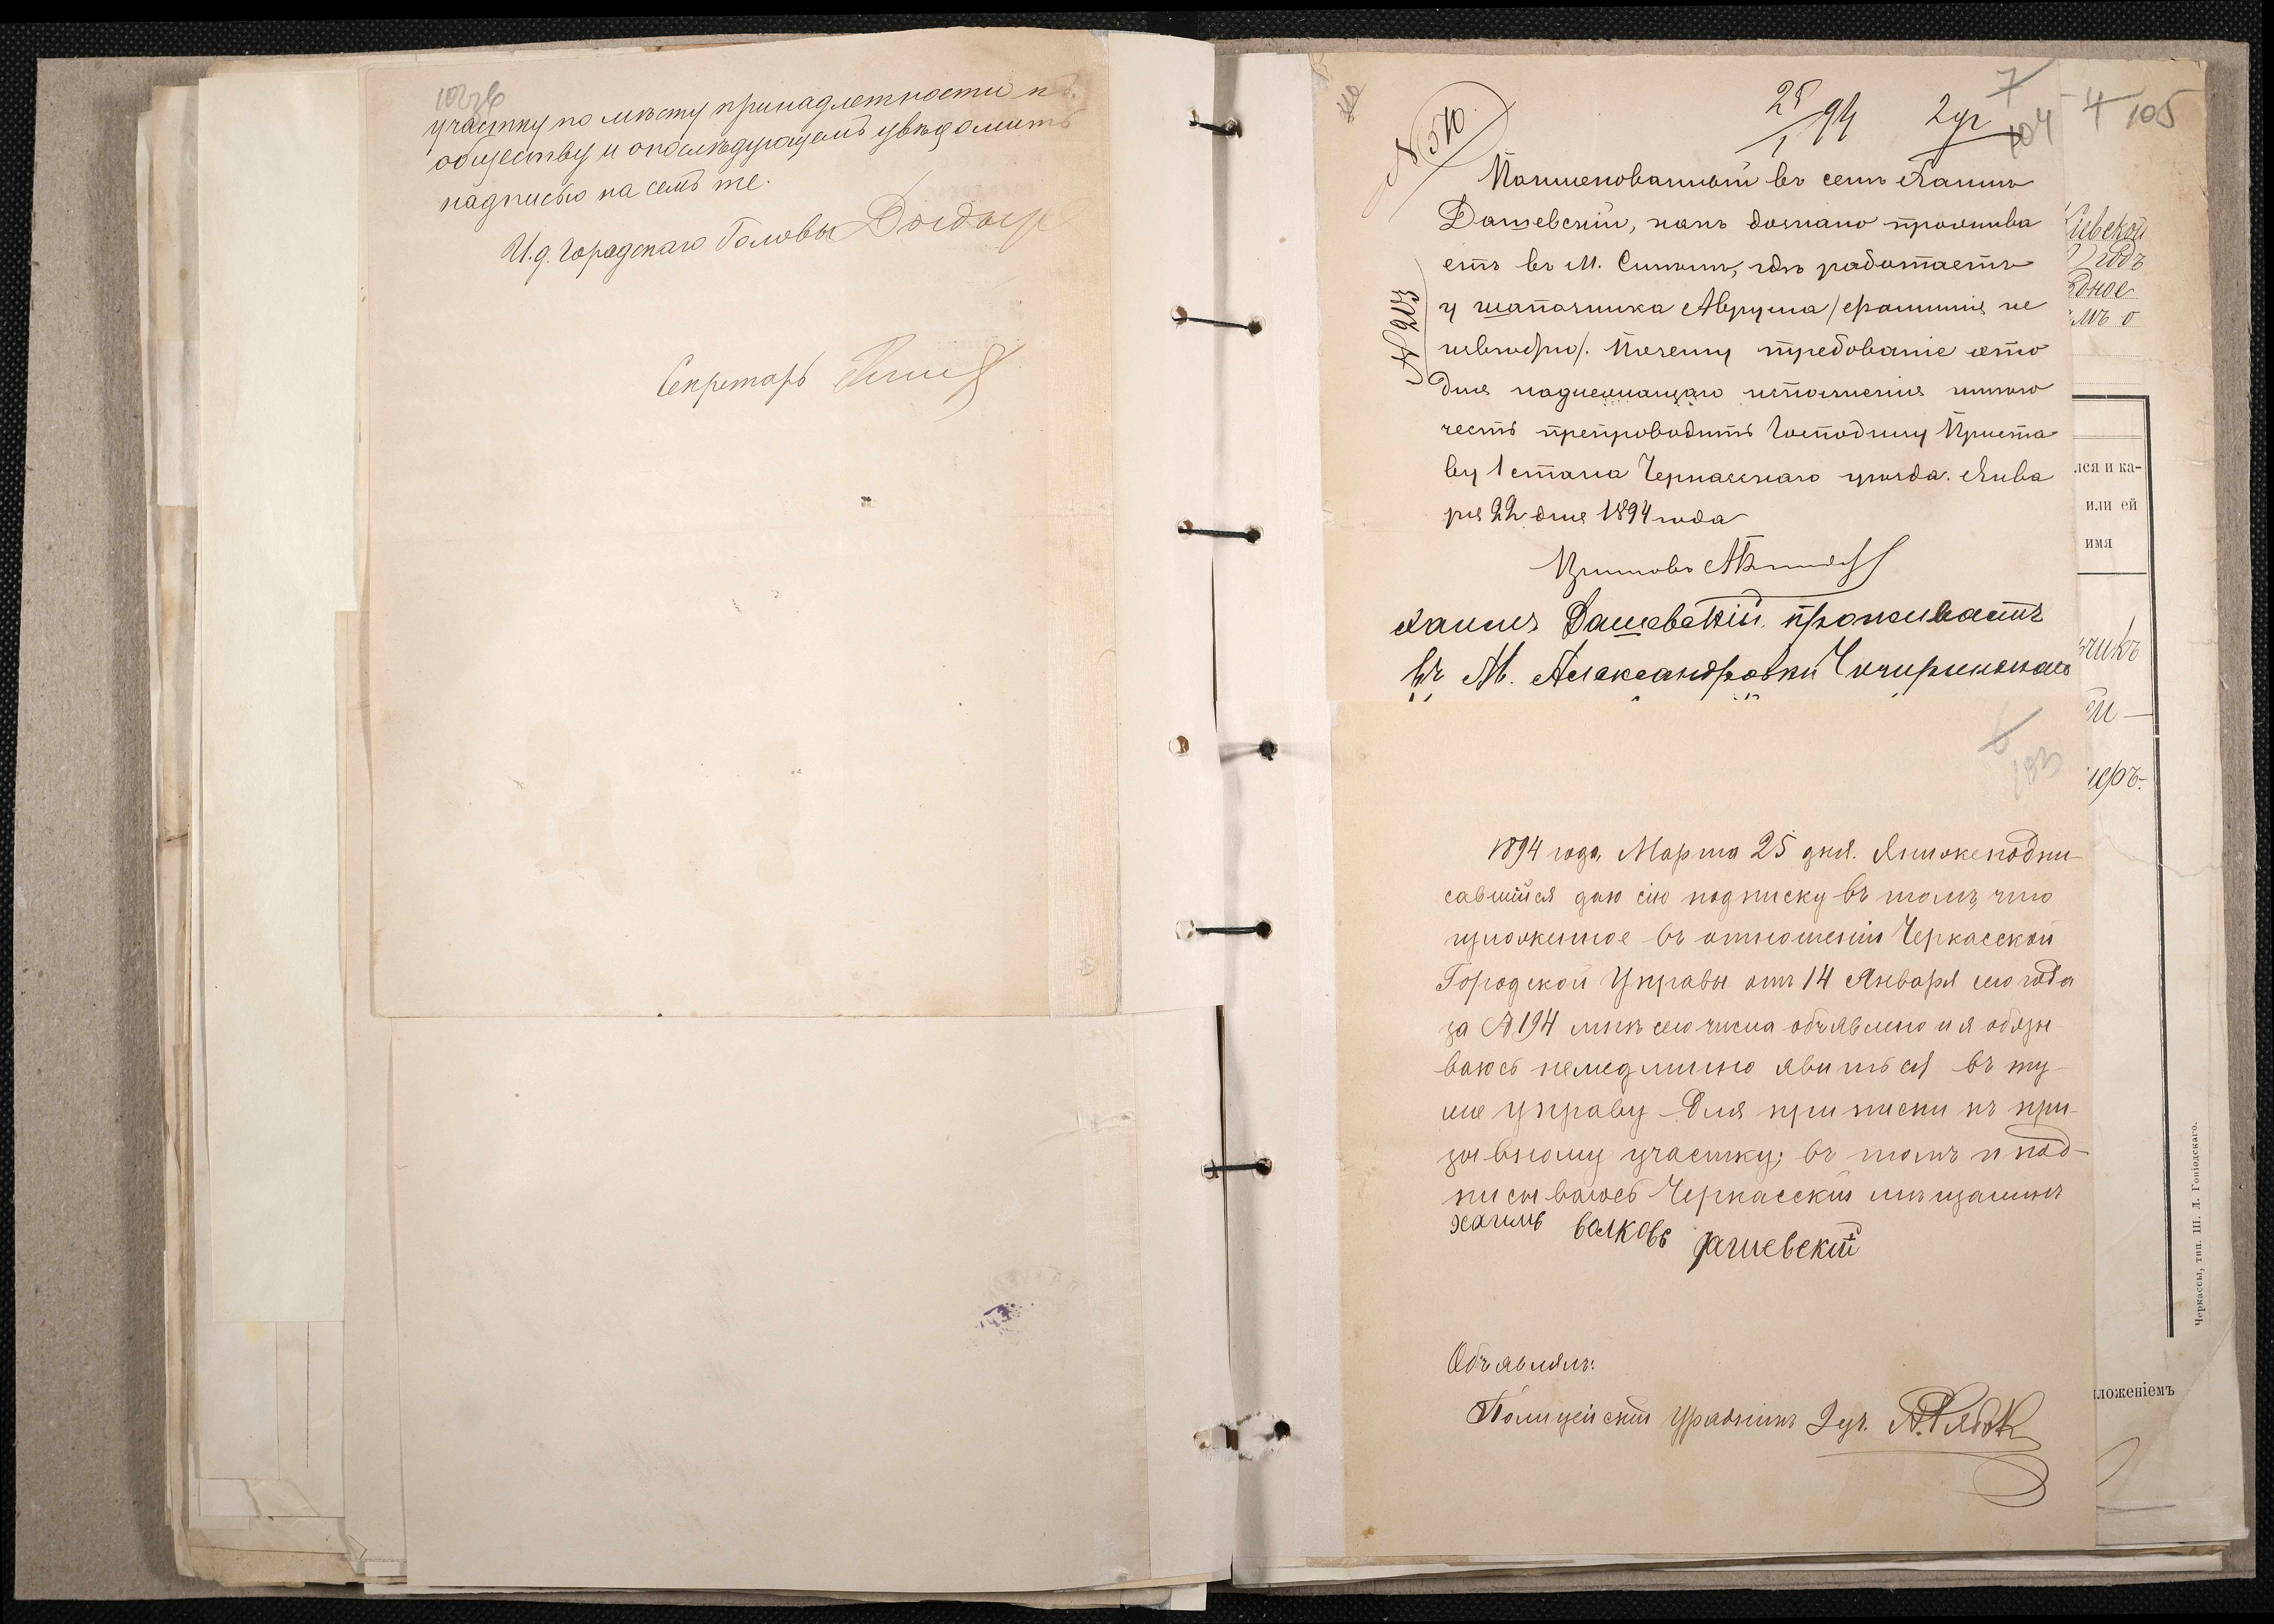 участку по мѣсту принадлежности къ
обществу и о послѣдующемъ увѣдомить
надписью на семъ же.
И. д. Городскаго Головы
Секретарь
№ 510
25/1 94 2 уч 7
104 4 105
Поименованный въ семъ Хаимъ
Дашевскій, какъ дознано прожива
етъ въ М. Смѣлѣ, гдѣ работаетъ
у шапочника Аврума /фамилія не
извѣстно/. Почему требованіе это
№ 213
для надлежащаго исполненія имѣю
честь препроводить Господину Приста
ву 1 стана Черкасскаго уѣзда. Янва
ря 22 дня 1894 года
Приставъ
Хаимъ Дашевскій проживаетъ
въ М. Александровки Чигиринскаго
6
103
1894 года, Марта 25 дня. Я нижеподпи-
савшійся даю сію подписку въ томъ, что
изложенное въ отношеніи Черкасской
Городской Управы отъ 14 Января сего года
за № 194 мнѣ сего числа объявлено и я обязы-
ваюсь немедленно явиться въ ту-
же управу для приписки къ при-
зывному участку; въ томъ и под-
писываюсь Черкасскій мѣщанинъ
хаимъ волковъ дашевскій
Объявлялъ:
Полицейскій Урядникъ 2 уч. А. Рябок
Кіевской
годъ
лся и ка-
или ей
имя
ложеніемъ
Черкассы, тип. Ш. Л. Гоніодскаго.